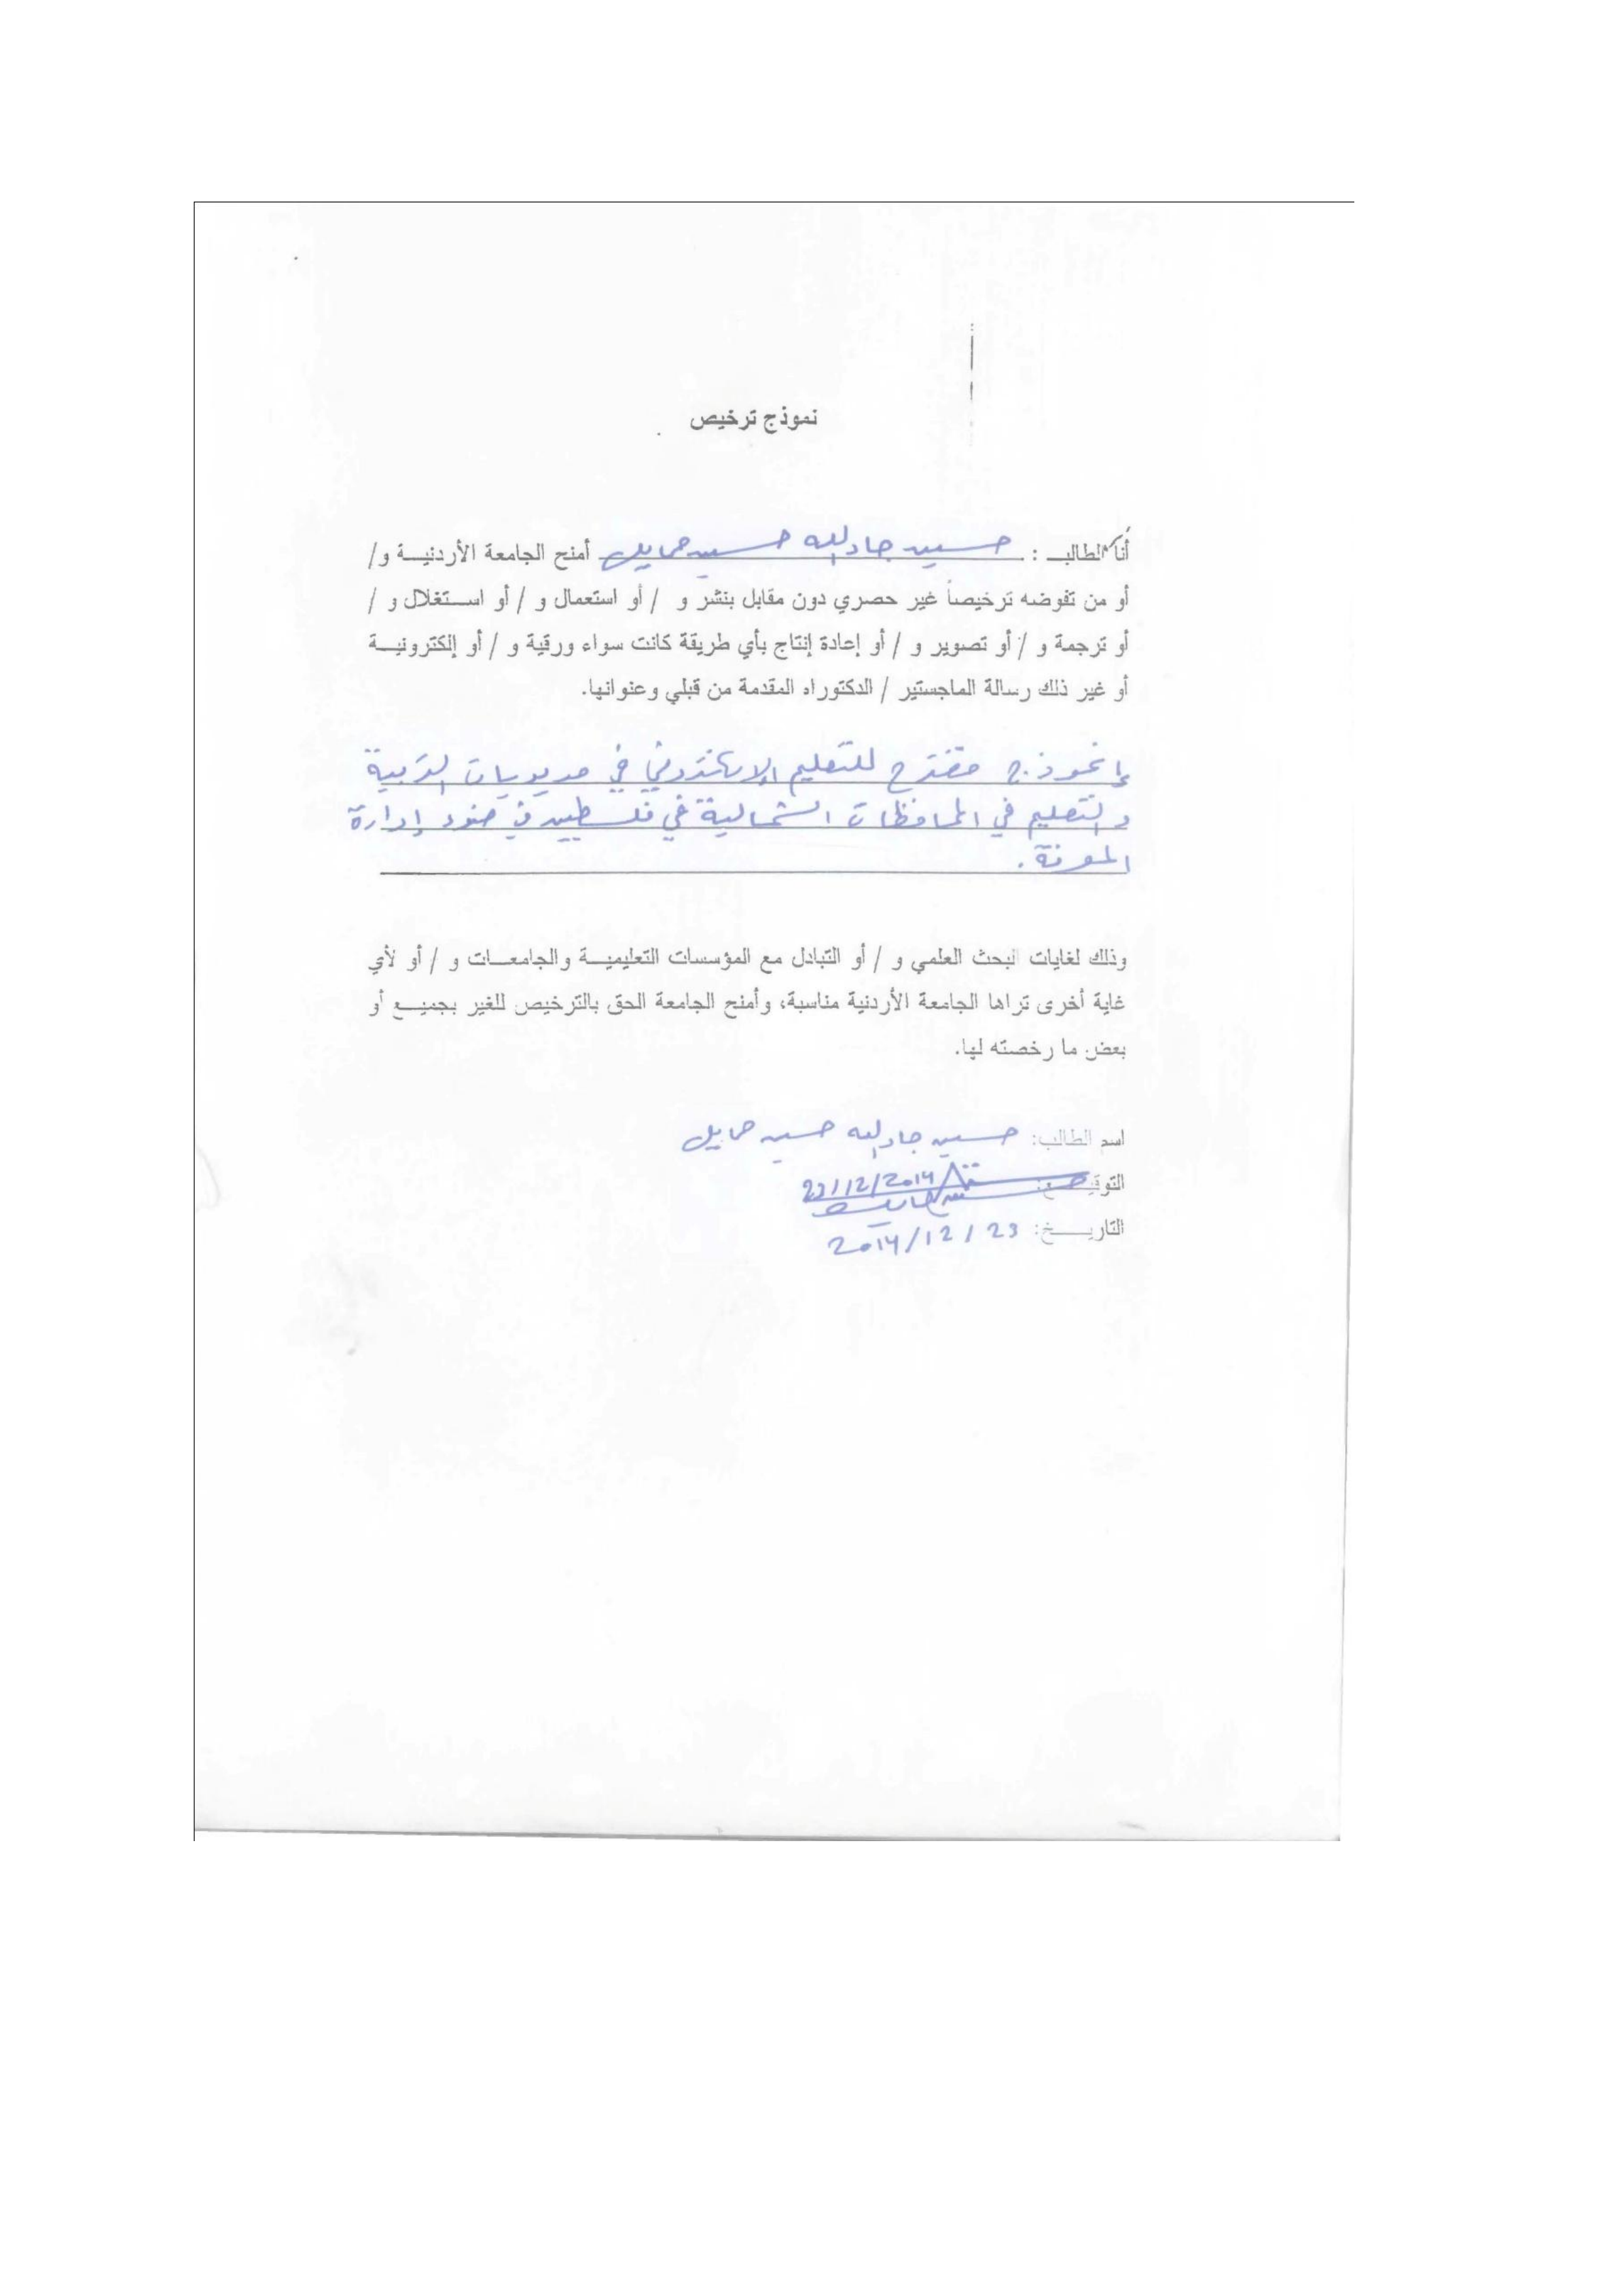 نموذج ترخيص
أنا الطالب : حسين جادالله حسين حمايل أمنح الجامعة الأردنية و/
أو من تفوضه ترخيصاً غير حصري دون مقابل بنشر و / أو استعمال و / أو استغلال و /
أو ترجمة و / أو تصوير و / أو إعادة إنتاج بأي طريقة كانت سواء ورقية و / أو إلكترونية
أو غير ذلك رسالة الماجستير / الدكتوراه المقدمة من قبلي وعنوانها.
إنموذج مقترح للتعليم الإلكتروني في مديريات التربية
والتعليم في المحافظات الشمالية في فلسطين في ضوء إدارة
المعرفة.
وذلك لغايات البحث العلمي و / أو التبادل مع المؤسسات التعليمية والجامعات و / أو لأي
غاية أخرى تراها الجامعة الأردنية مناسبة، وأمنح الجامعة الحق بالترخيص للغير بجميع أو
بعض ما رخصته لها.
اسم الطالب: حسين جادالله حسين حمايل
التوقيع: 23/12/2014
التاريخ: 23 / 12 / 2014